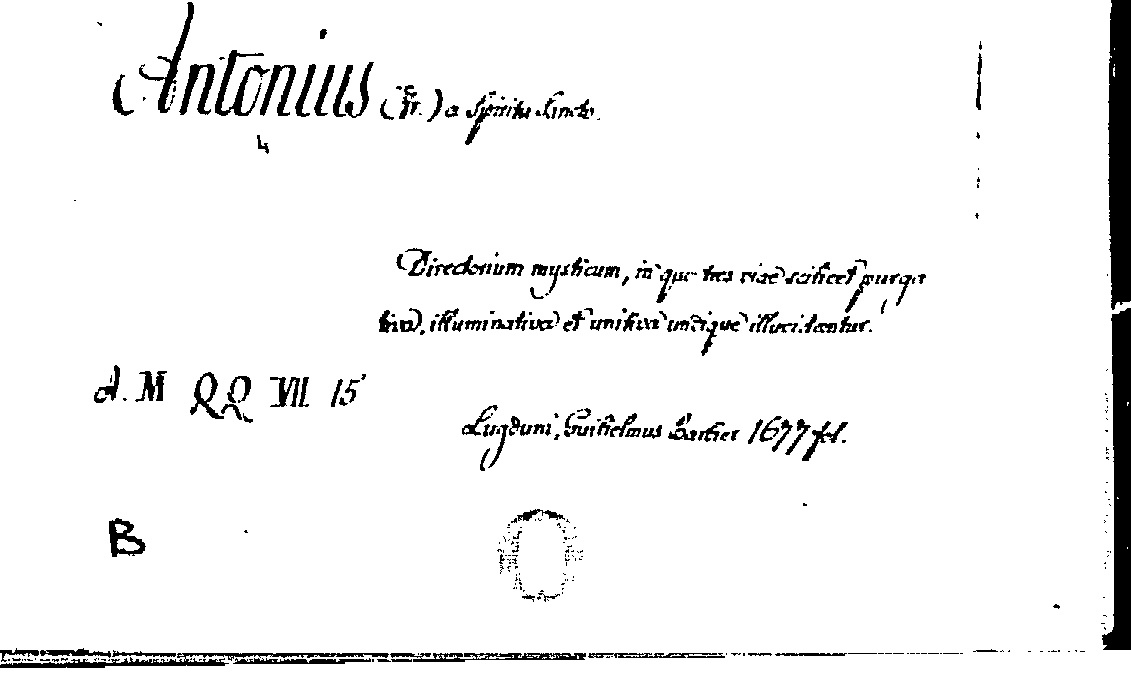 Antonius (Fr.) a Spiritu Sancto.
4
Directorium mysticum, in quo tres viae scilicet purga
tiva, illuminativa et unitiva undique illucidantur.
A. M QQ VII 15
Lugduni, Guilielmus Barbier 1677 fol.
B